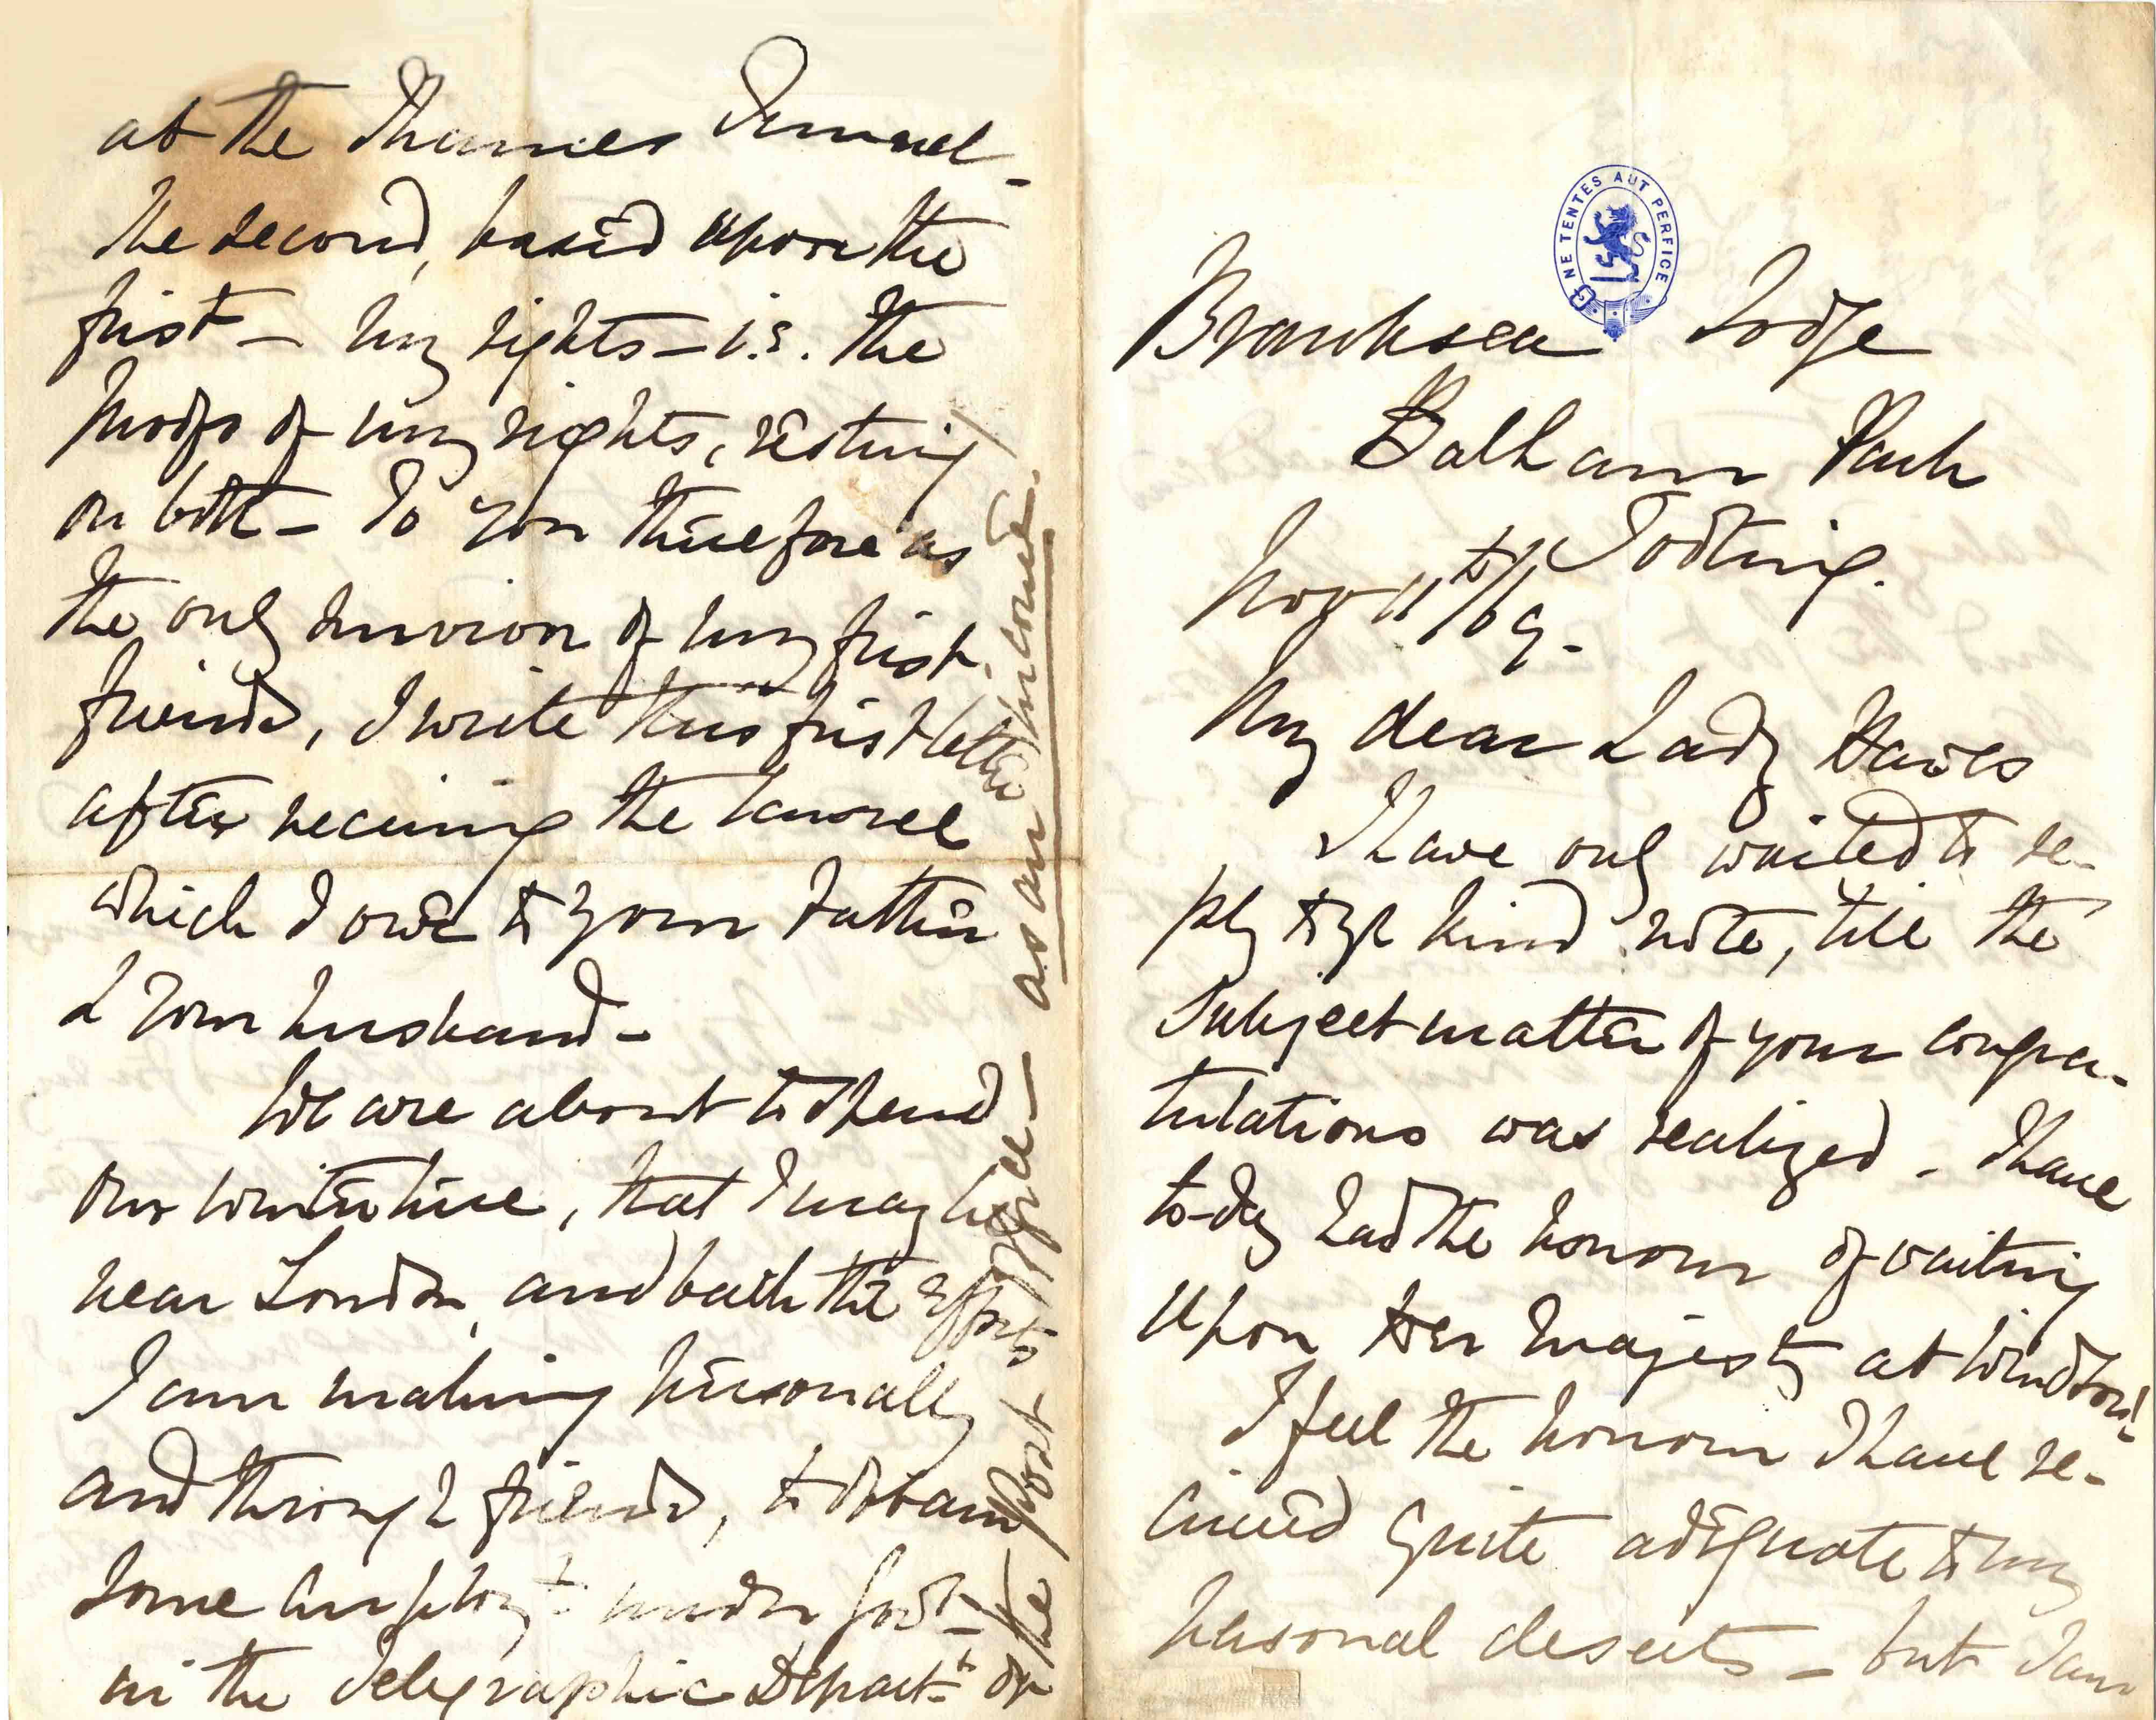 NE TENTES AUT PERFICE
Branksea Lodge
Balham Park
Tooting.
Nov 11th/69-
My dear Lady Hawes
I have only waited to re-
ply to yr kind note, till the
subject matter of your congra-
tulations was realized. I have
to-day had the honour of waiting
upon Her Majesty at Windsor!
I feel the honour I have re-
ceived quite adequate to my
personal deserts - but I am
at the Thames Tunnel -
the second, based upon the
first - my rights - i.e. the
proofs of my rights, resting
on both - To you therefore as
the only survivor of my first
friends, I write this first letter
after receiving the honour
which I owe to your Father
& your husband -
We are about to spend
our winter here, that I may be
near London, and back the efforts
I am making personally
and through friends, to obtain
some employt under Govt -
in the Telegraphic Departt of
the Post Office - as an income.